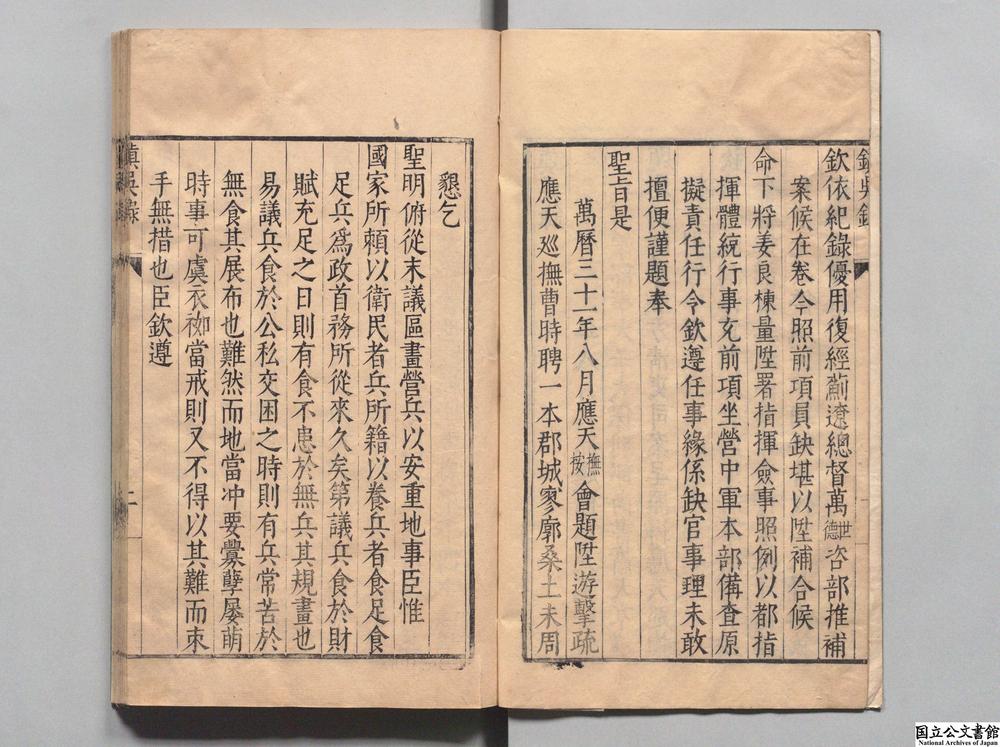 欽依紀錄優用復經薊遼總督萬世德咨部推補
案候在卷今照前項員缺堪以陞補合候
命下將姜良棟量陞署指揮僉事照例以都指
揮體統行事充前項坐營中軍本部備查原
擬責任行令欽遵任事緣係缺官事理未敢
擅便謹題奉
聖旨是
萬曆三十一年八月應天撫按會題陞游擊疏
應天巡撫曹時聘一本郡城寥廓桑土未周
懇乞
聖明俯從末議區畫營兵以安重地事臣惟
國家所賴以衛民者兵所籍以養兵者食足食
足兵爲政首務所從來久矣第議兵食於財
賦充足之日則有食不患於無兵其規畫也
易議兵食於公私交困之時則有兵常苦於
無食其展布也難然而地當冲要釁孽屡萌
時事可虞衣袽當戒則又不得以其難而束
手無措也臣欽遵
鎮吳錄
二
国立公文書館
National Archives of Japan